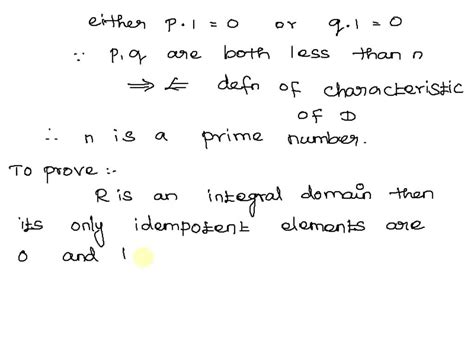 either p.1 = 0 or q.1 = 0
∵ p,q are both less than n
⇒⇐ defn of characteristic
of D
∴ n is a prime number.
To prove :-
R is an integral domain then
its only idempotent elements are
0 and 1